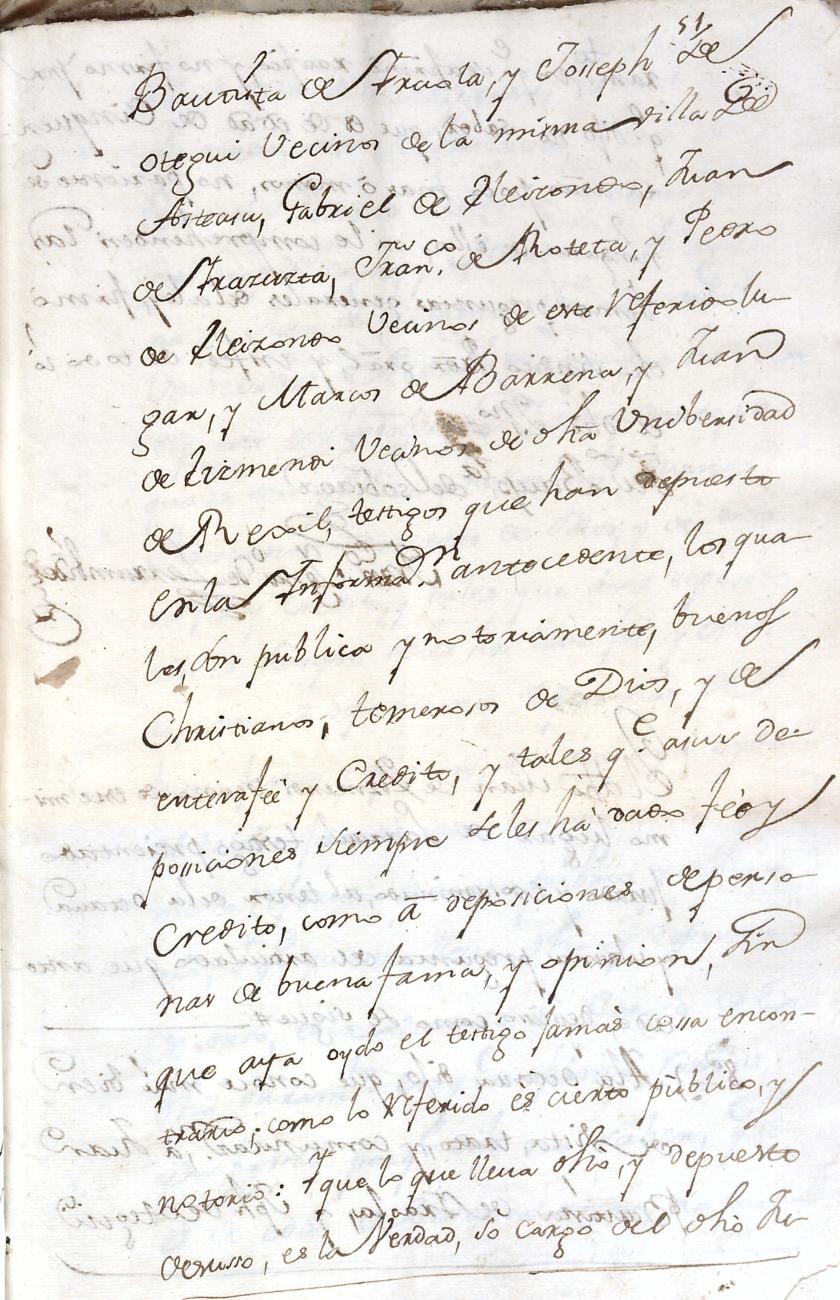 51
Bautista de Yraola, y Joseph de
otegui Vecinos de la misma villa de
Asteasu, Gabriel de Aleizondo, Juan
de Yrazuzta, Fran.co de Roteta, y Pedro
de Aleizondo Vecinos de este referido lu-
gar, y Marcos de Barrena, y Juan
de Lizmendi Vecinos de dha Unibersidad
de Rexil, testigos que han depuesto
en la Informaon antecedente, los qua-
les, son publica y notoriamente, buenos
Christianos, temerosos de Dios, y de
entera fee y Credito, y tales q.e asus de-
posiciones siempre seles há dado feé y
Credito, como â deposiciones de perso-
nas de buena fama, y opinion, sin
que aya oydo el testigo jamàs cossa encon-
trario; como lo referido es cierto publico, y
notorio: Y que lo que lleva dho, y depuesto
de suso, es la Verdad, so cargo del dho Ju-